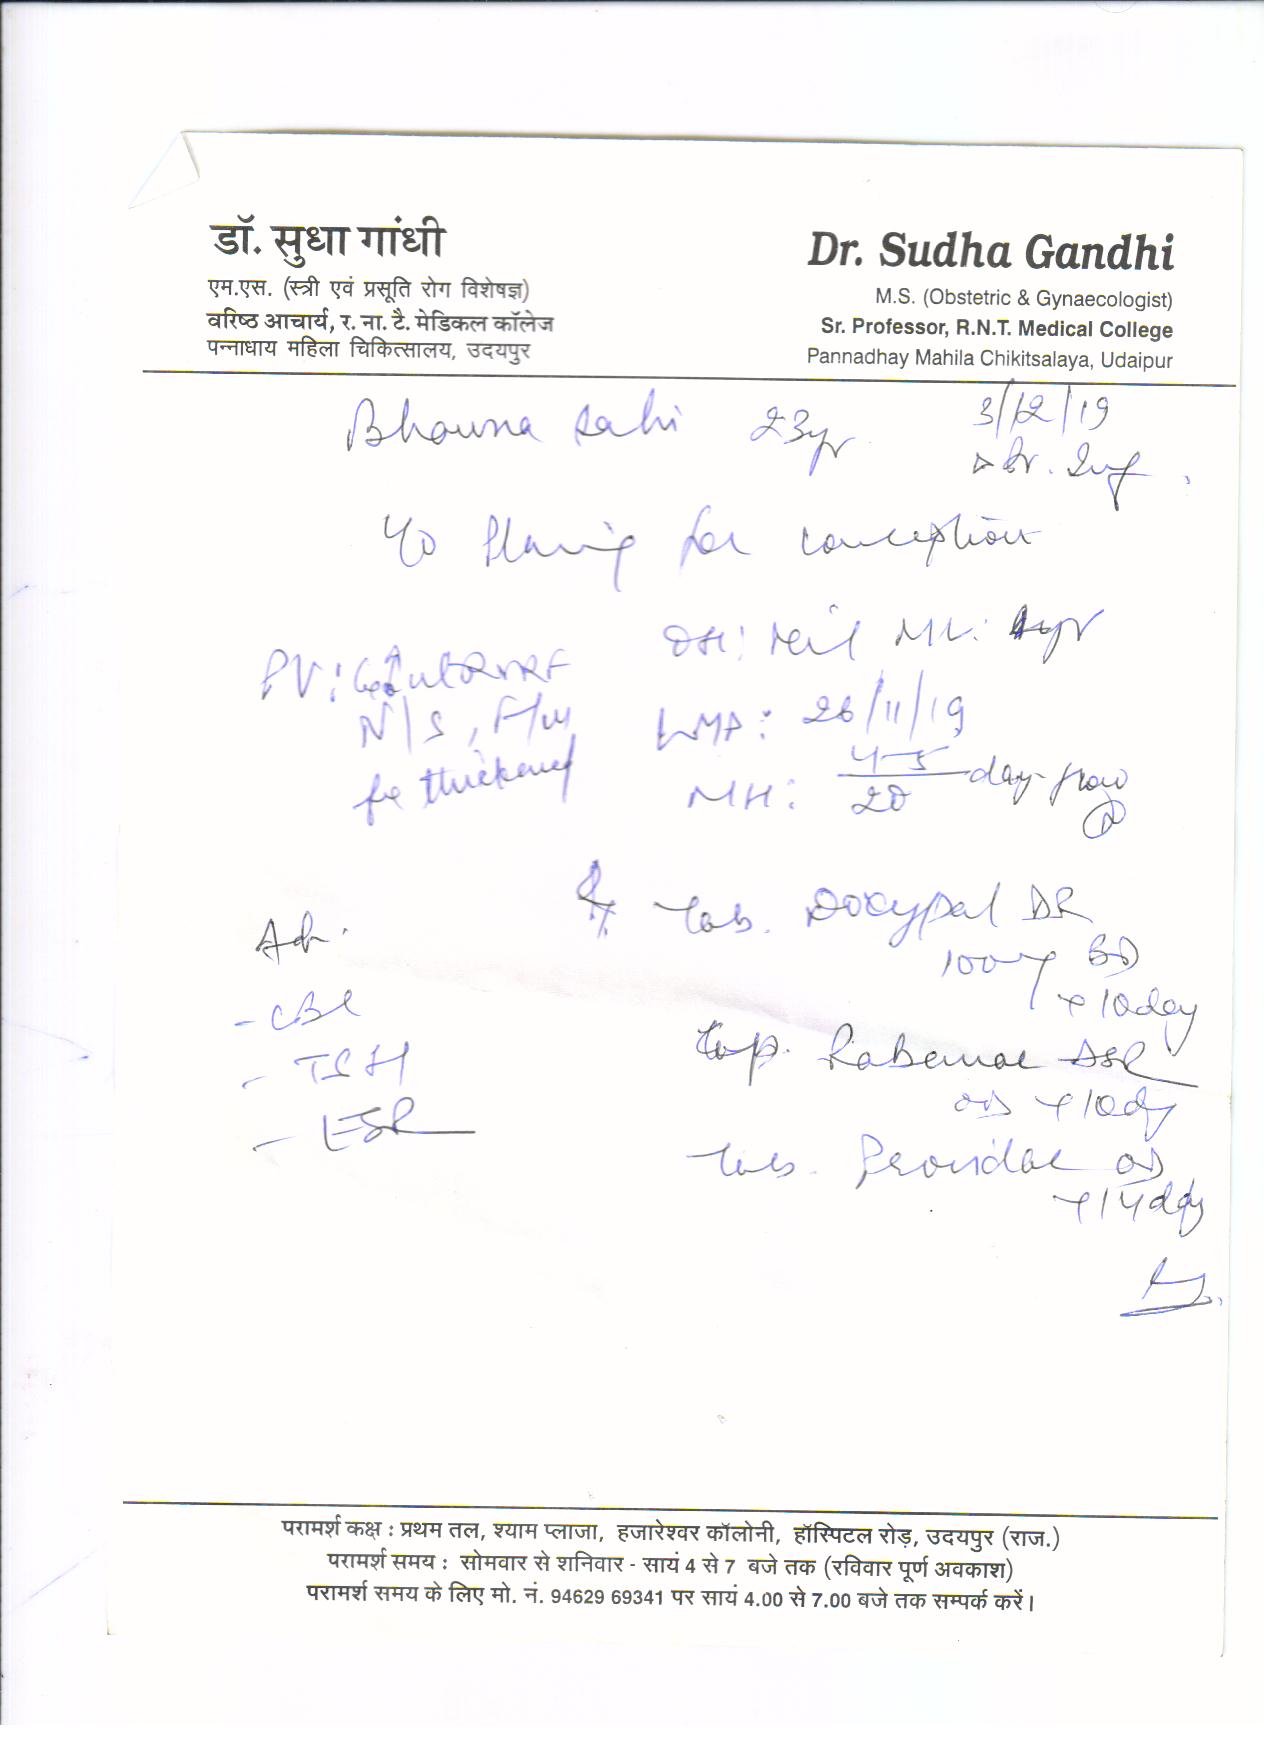 डॉ. सुधा गांधी
एम.एस. (स्त्री एवं प्रसूति रोग विशेषज्ञ)
वरिष्ठ आचार्य, र. ना. टै. मेडिकल कॉलेज
पन्नाधाय महिला चिकित्सालय, उदयपुर
Dr. Sudha Gandhi
M.S. (Obstetric & Gynaecologist)
Sr. Professor, R.N.T. Medical College
Pannadhay Mahila Chikitsalaya, Udaipur
Bhawna Sahi 23yr 3/12/19
Pr. Inf.
Planing for conception
OH: Nil ML: yr
PV:
N/S, F/m
fx thickened
LMP: 26/11/19
MH: 4-5/28 day flow
Rx Tab. Doxypal DR
100mg BD
x 10day
Cap. DSR
OD x 10dy
Tab. OD
x 14ddy
Adv.
- CBC
- TSH
- ESR
परामर्श कक्ष : प्रथम तल, श्याम प्लाजा, हजारेश्वर कॉलोनी, हॉस्पिटल रोड़, उदयपुर (राज.)
परामर्श समय : सोमवार से शनिवार - सायं 4 से 7 बजे तक (रविवार पूर्ण अवकाश)
परामर्श समय के लिए मो. नं. 94629 69341 पर सायं 4.00 से 7.00 बजे तक सम्पर्क करें।